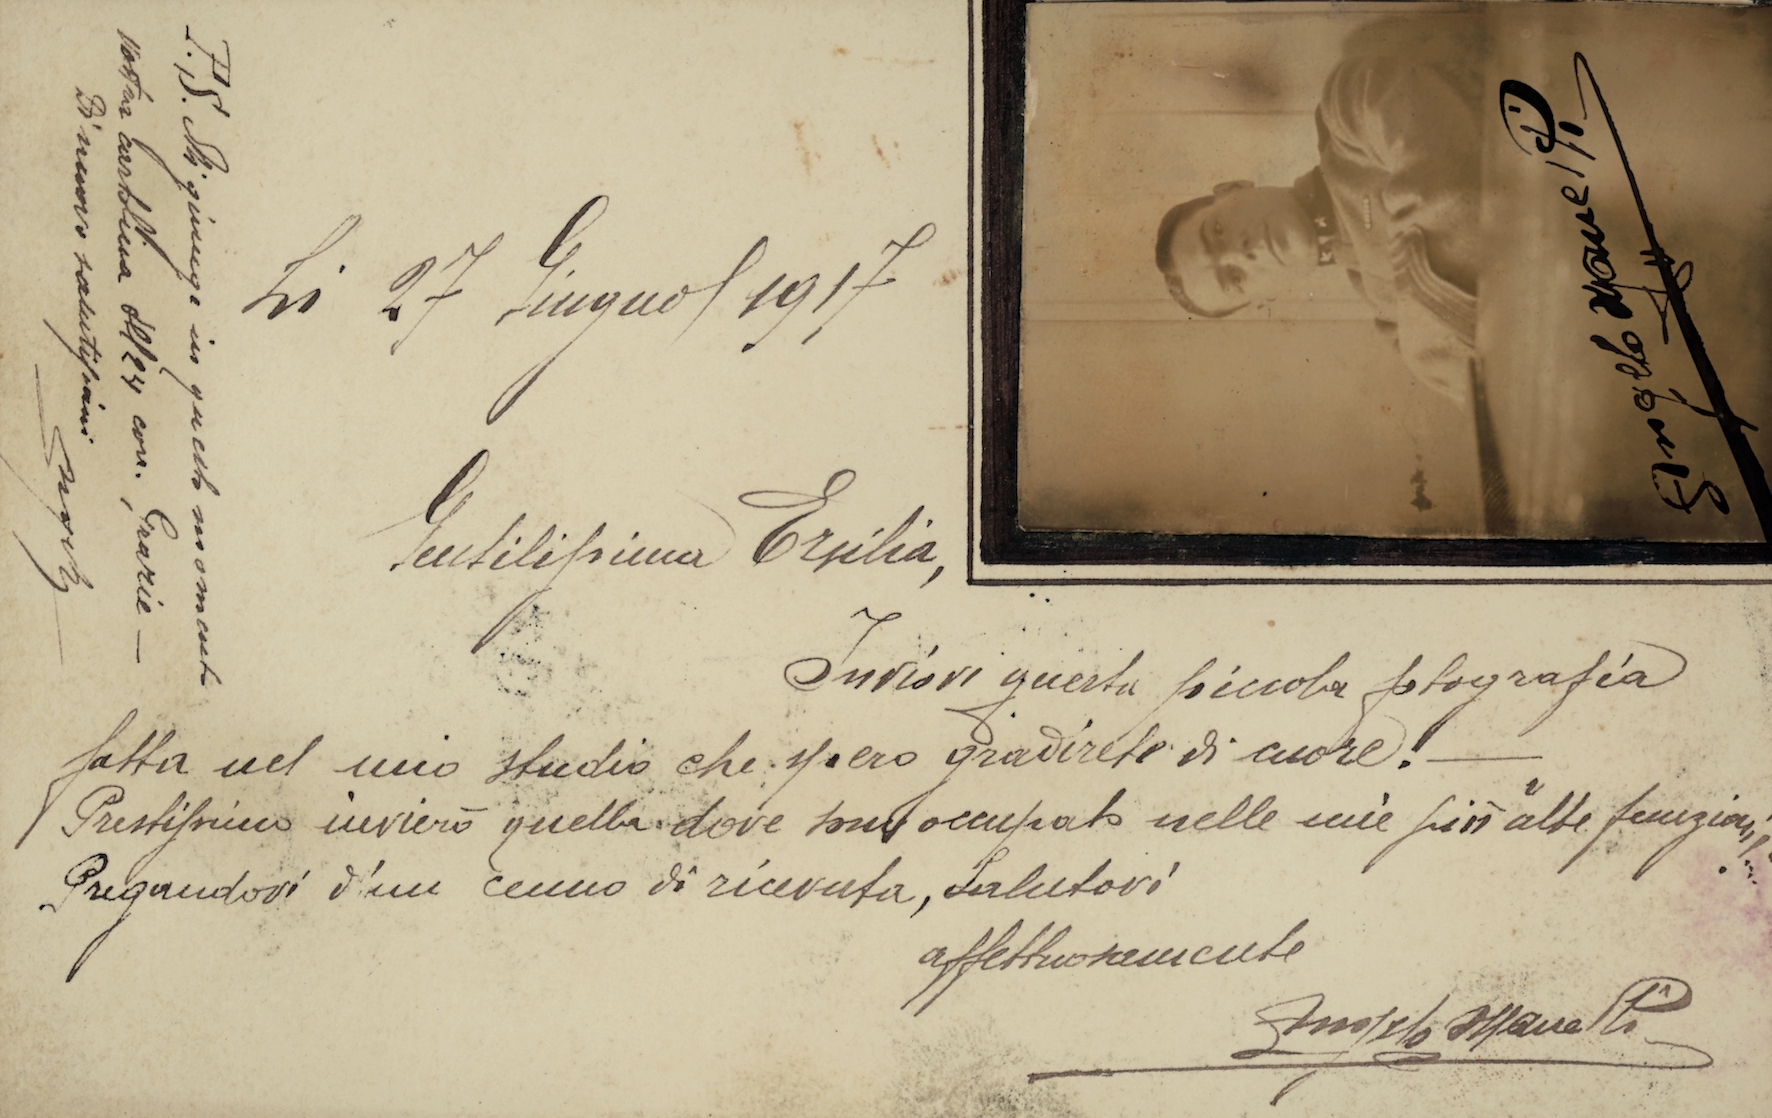 Li 27 Giugno 1917
Gentilissima Ersilia,
Inviovi questa piccola fotografia
fatta nel mio studio che spero gradirete di cuore! —
Prestissimo invierò quella dove sono occupato nelle mie più "alte funzioni!..
Pregandovi d'un cenno di ricevuta, Salutovi
affettuosamente
Angelo Manetti
P.S. Mi giunge in questo momento
vostra cartolina del 24 corr., Grazie —
Di nuovo salutissimi
Angelo
Angelo Manetti